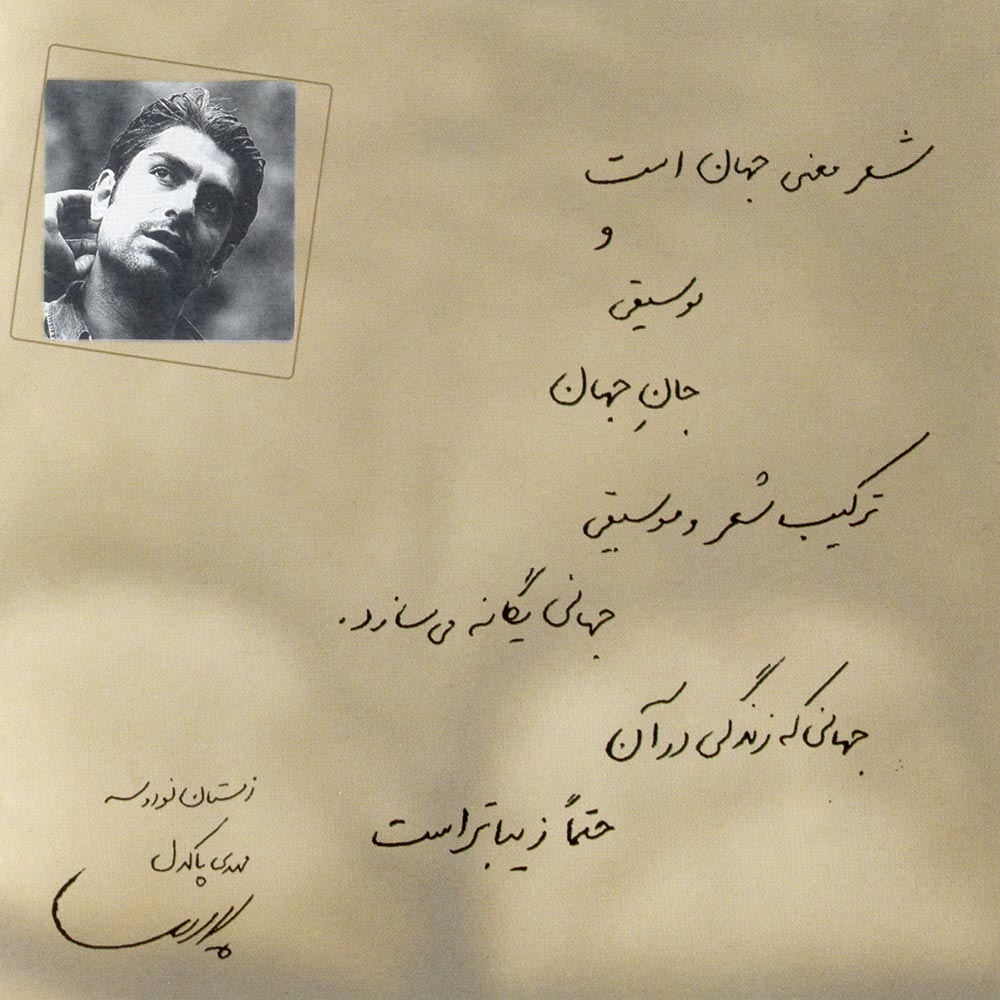 شعر معنی جهان است
و
موسیقی
جانِ جهان
ترکیب شعر و موسیقی
جهانی یگانه می سازد.
جهانی که زندگی در آن
حتماً زیباتر است
زمستان نود و سه
مهدی پاکدل